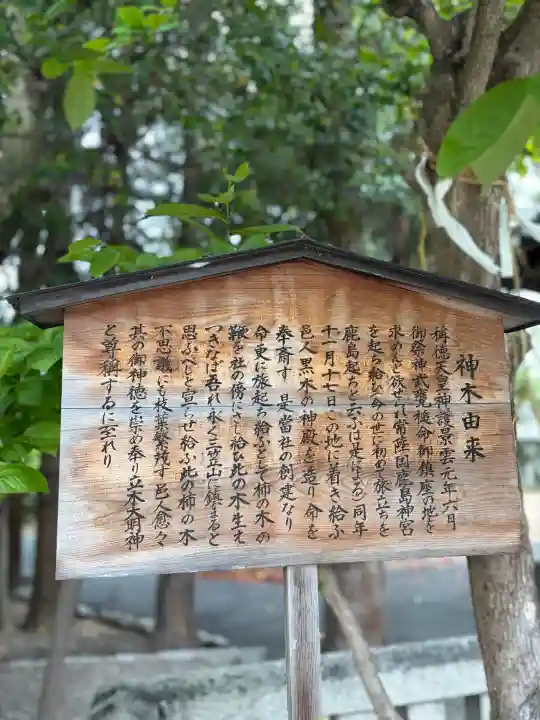 神木由来
稱徳天皇神護景雲元年六月
御祭神武甕槌命御鎮座の地を
求めむと欲せられ常陸国鹿島神宮
を起ち給ひ(今の世に初めて旅立ちを
鹿島起ちと云ふは是による)同年
十一月十七日この地に着き給ふ
邑人黒木の神殿を造り命を
奉斎す 是當社の創建なり
命更に旅起ち給ふとして柿の木の
鞭を社の傍にさし給ひ此の木生え
つきなば吾れ永く三笠山に鎮まると
思ふべしと宣らせ給ふ此の柿の木
不思議にも枝葉繁り茂す邑人愈々
其の御神徳を崇め奉り立木大明神
と尊稱するに至れり